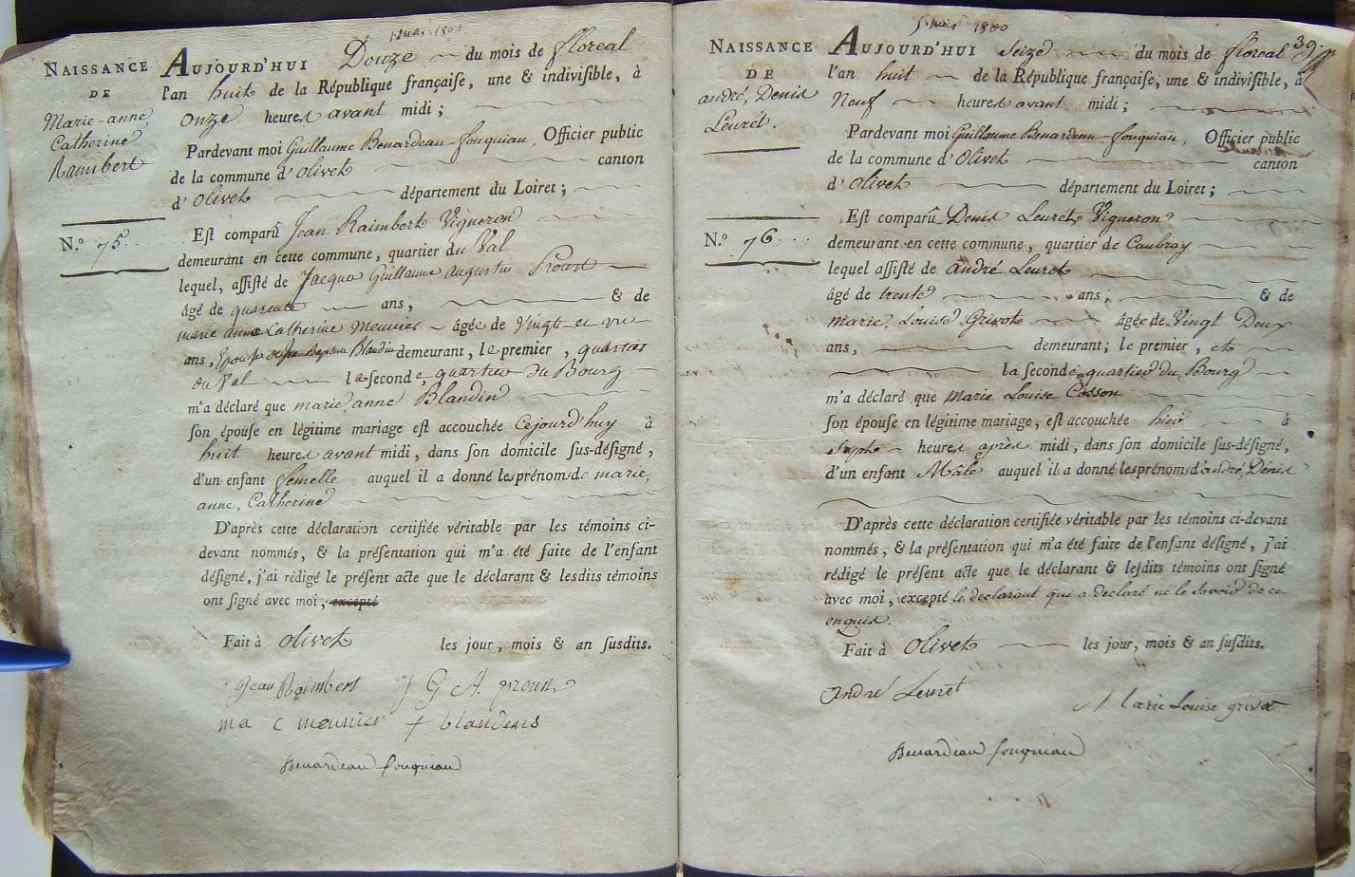 mai 1800
NAISSANCE
DE
Marie-anne
Catherine
Raimbert
N.º 75
AUJOURD'HUI Douze du mois de floreal
l'an huit de la République françaiſe, une & indiviſible, à
Onze heures avant midi ;
Pardevant moi Guillaume Benardeau-fouquiau, Officier public
de la commune d'Olivet canton
d'Olivet département du Loiret ;
Eſt comparû Jean Raimbert Vigneron
demeurant en cette commune, quartier du Val
lequel, aſſiſté de Jacque Guillaume Augustin Proust
âgé de quarente ans, & de
marie anne Catherine Meunier âgée de Vingt et un
ans, Epouse de Jean Baptiste Blandin demeurant, le premier, quartier
du Val la seconde, quartier du Bourg
m'a déclaré que marie anne Blandin
ſon épouſe en légitime mariage eſt accouchée Cejourd'huy à
huit heures avant midi, dans ſon domicile ſus-déſigné,
d'un enfant femelle auquel il a donné les prénoms de marie,
anne, Catherine
D'après cette déclaration certifiée véritable par les témoins ci-
devant nommés, & la préſentation qui m'a été faite de l'enfant
déſigné, j'ai rédigé le préſent acte que le déclarant & leſdits témoins
ont ſigné avec moi, excepté
Fait à Olivet les jour, mois & an ſuſdits.
Jean Raimbert J G A proust
ma c meunier f blandins
Benardeau fouquiau
mai 1800
39
NAISSANCE
DE
andré, Denis
Leuret.
N.º 76
AUJOURD'HUI Seize du mois de floreal
l'an huit de la République françaiſe, une & indiviſible, à
Neuf heures avant midi ;
Pardevant moi Guillaume Benardeau-fouquiau, Officier public
de la commune d'Olivet canton
d'Olivet département du Loiret ;
Eſt comparû Denis Leuret, Vigneron
demeurant en cette commune, quartier de Caubray
lequel aſſiſté de andré Leuret
âgé de trente ans, & de
marie, Louise Grivot âgée de Vingt Deux
ans, demeurant; le premier, et
la seconde quartier du Bourg
m'a déclaré que Marie Louise Cosson
ſon épouſe en légitime mariage, eſt accouchée hier à
Sept heures après midi, dans ſon domicile ſus-déſigné,
d'un enfant Mâle auquel il a donné les prénoms d'andré, Denis
D'après cette déclaration certifiée véritable par les témoins ci-devant
nommés, & la préſentation qui m'a été faite de l'enfant déſigné, j'ai
rédigé le préſent acte que le déclarant & leſdits témoins ont ſigné
avec moi, excepté le declarant qui a declaré ne le Savoir de ce
enquis.
Fait à Olivet les jour, mois & an ſuſdits.
André Leuret
Marie Louise grivot
Benardeau fouquiau